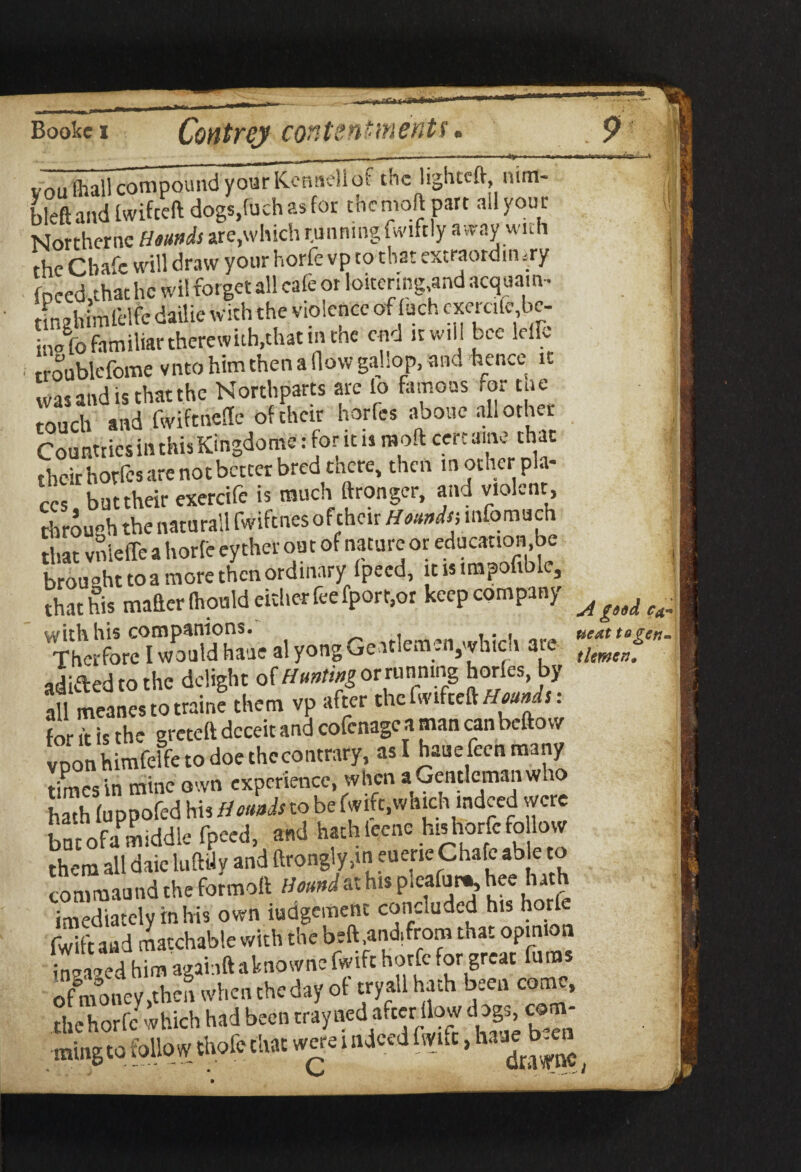 Booke 1 Contrey contentments. 9
you ſhall compound your Kennell of the lighteſt, nim-
bleſt and ſwifteſt dogs, ſuch as for the moſt part all your
Northerne Hounds are, which running ſwiftly away with
the Chaſe will draw your horſe vp to that extraordinary
ſpeed, that he wil forget all eaſe or loitering, and acquain-
ting himſelfe dailie with the violence of ſuch exerciſe, be-
ing ſo familiar therewith, that in the end it will bee leſſe
troubleſome vnto him then a ſlow gallop, and hence it
was and is that the Northparts are ſo famous for the
touch and ſwiftneſſe of their horſes aboue all other
Countries in this Kingdome: for it is moſt certaine that
their horſes are not better bred there, then in other pla-
ces, but their exerciſe is much ſtronger, and violent,
through the naturall ſwiftnes of their Hounds; inſomuch
that vnleſſe a horſe eyther out of nature or education, be
brought to a more then ordinary ſpeed, it is impoſible,
that his maſter ſhould either ſee ſport, or keep company
with his companions.
Therfore I would haue al yong Gentlemen, which are
adicted to the delight of Hunting or running horſes, by
all meanes to traine them vp after the ſwifteſt Hounds:
for it is the greteſt deceit and coſenage a man can beſtow
vpon himſelfe to doe the contrary, as I haue ſeen many
times in mine own experience, when a Gentleman who
hath ſuppoſed his Hounds to be ſwift, which indeed were
but of a middle ſpeed, and hath ſeene his horſe follow
them all daie luſtily and ſtrongly, in euerie Chaſe able to
commaund the formoſt Hound at his pleaſure, hee hath
imediately in his own iudgement concluded his horſe
ſwift and matchable with the beſt, and from that opinion
ingaged him againſt a knowne ſwift horſe for great ſums
of money, then when the day of tryall hath been come,
the horſe which had been trayned after ſlow dogs, com-
ming to follow thoſe that were indeed ſwift, haue been
C drawne,
A good ca-
ueat to gen-
tlemen.